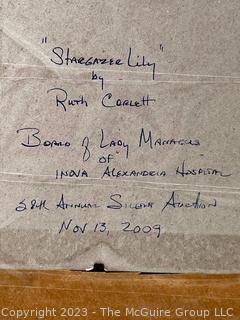 "Stargazer Lily"
by
Ruth Corlett
Board of Lady Managers
of
Inova Alexandria Hospital
58th Annual Silent Auction
Nov 13, 2009
Copyright 2023 - The McGuire Group LLC